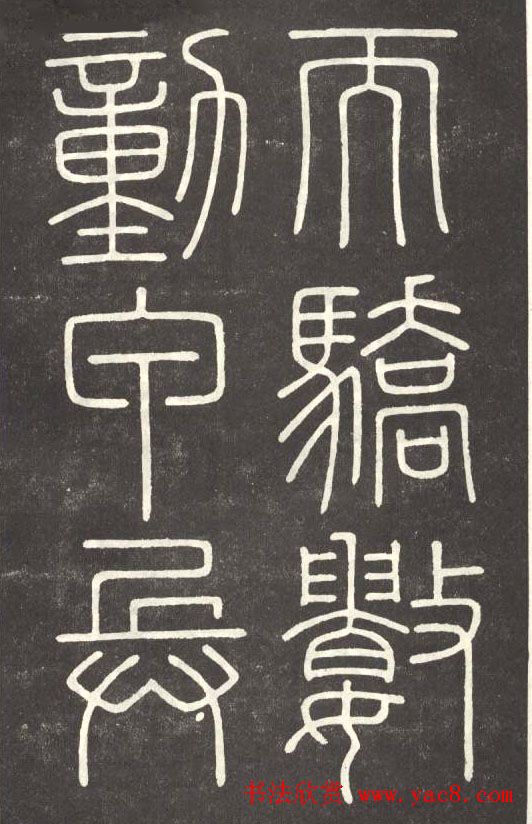 天驕數
動甲兵
书法欣赏 www.yac8.com